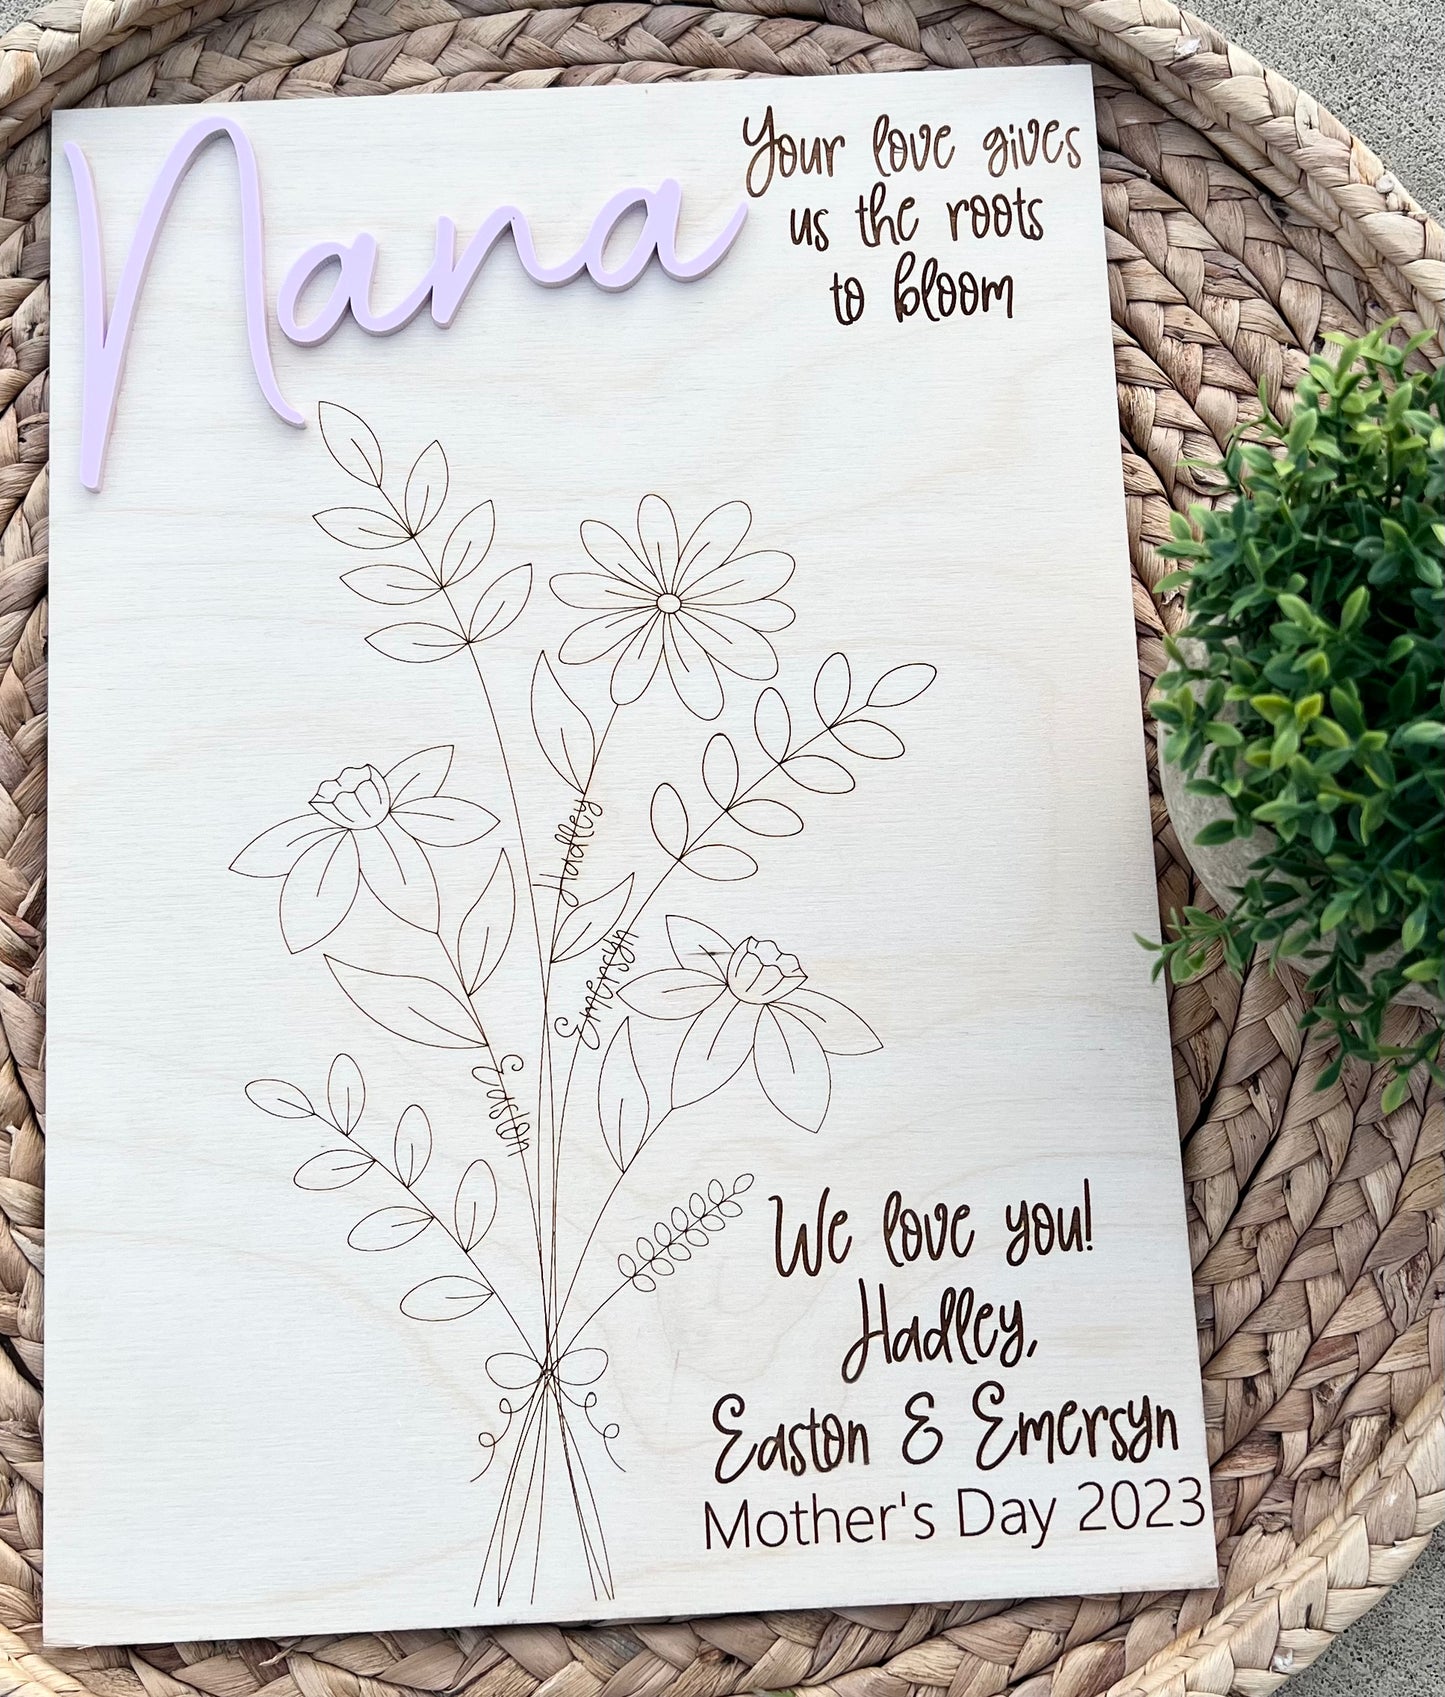 Nana
Your love gives
us the roots
to bloom
Hadley
Emersyn
Easton
We love you!
Hadley,
Easton & Emersyn
Mother's Day 2023